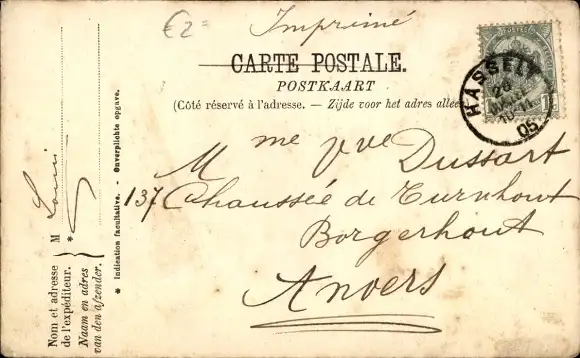 €2=
Imprimé
CARTE POSTALE.
POSTKAART
(Côté réservé à l'adresse. — Zijde voor het adres alleen
HASSELT
10-11
05
Mme Vve Dussart
137 Chaussée de Turnhout
Borgerhout
Anvers
Nom et adresse de l'expéditeur.
Naam en adres van den afzender.
M Louis
*
* Indication facultative. - Onverplichte opgave.